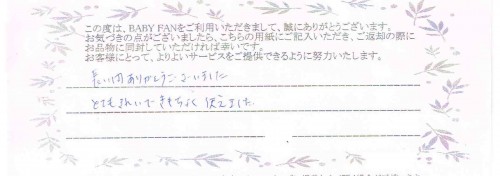 この度は、BABY FANをご利用いただきまして、誠にありがとうございます。
お気づきの点がございましたら、こちらの用紙にご記入いただき、ご返却の際に
お品物に同封していただければ幸いです。
お客様にとって、よりよいサービスをご提供できるように努力いたします。
長い間ありがとうございました
とてもきれいできもちよく使えました